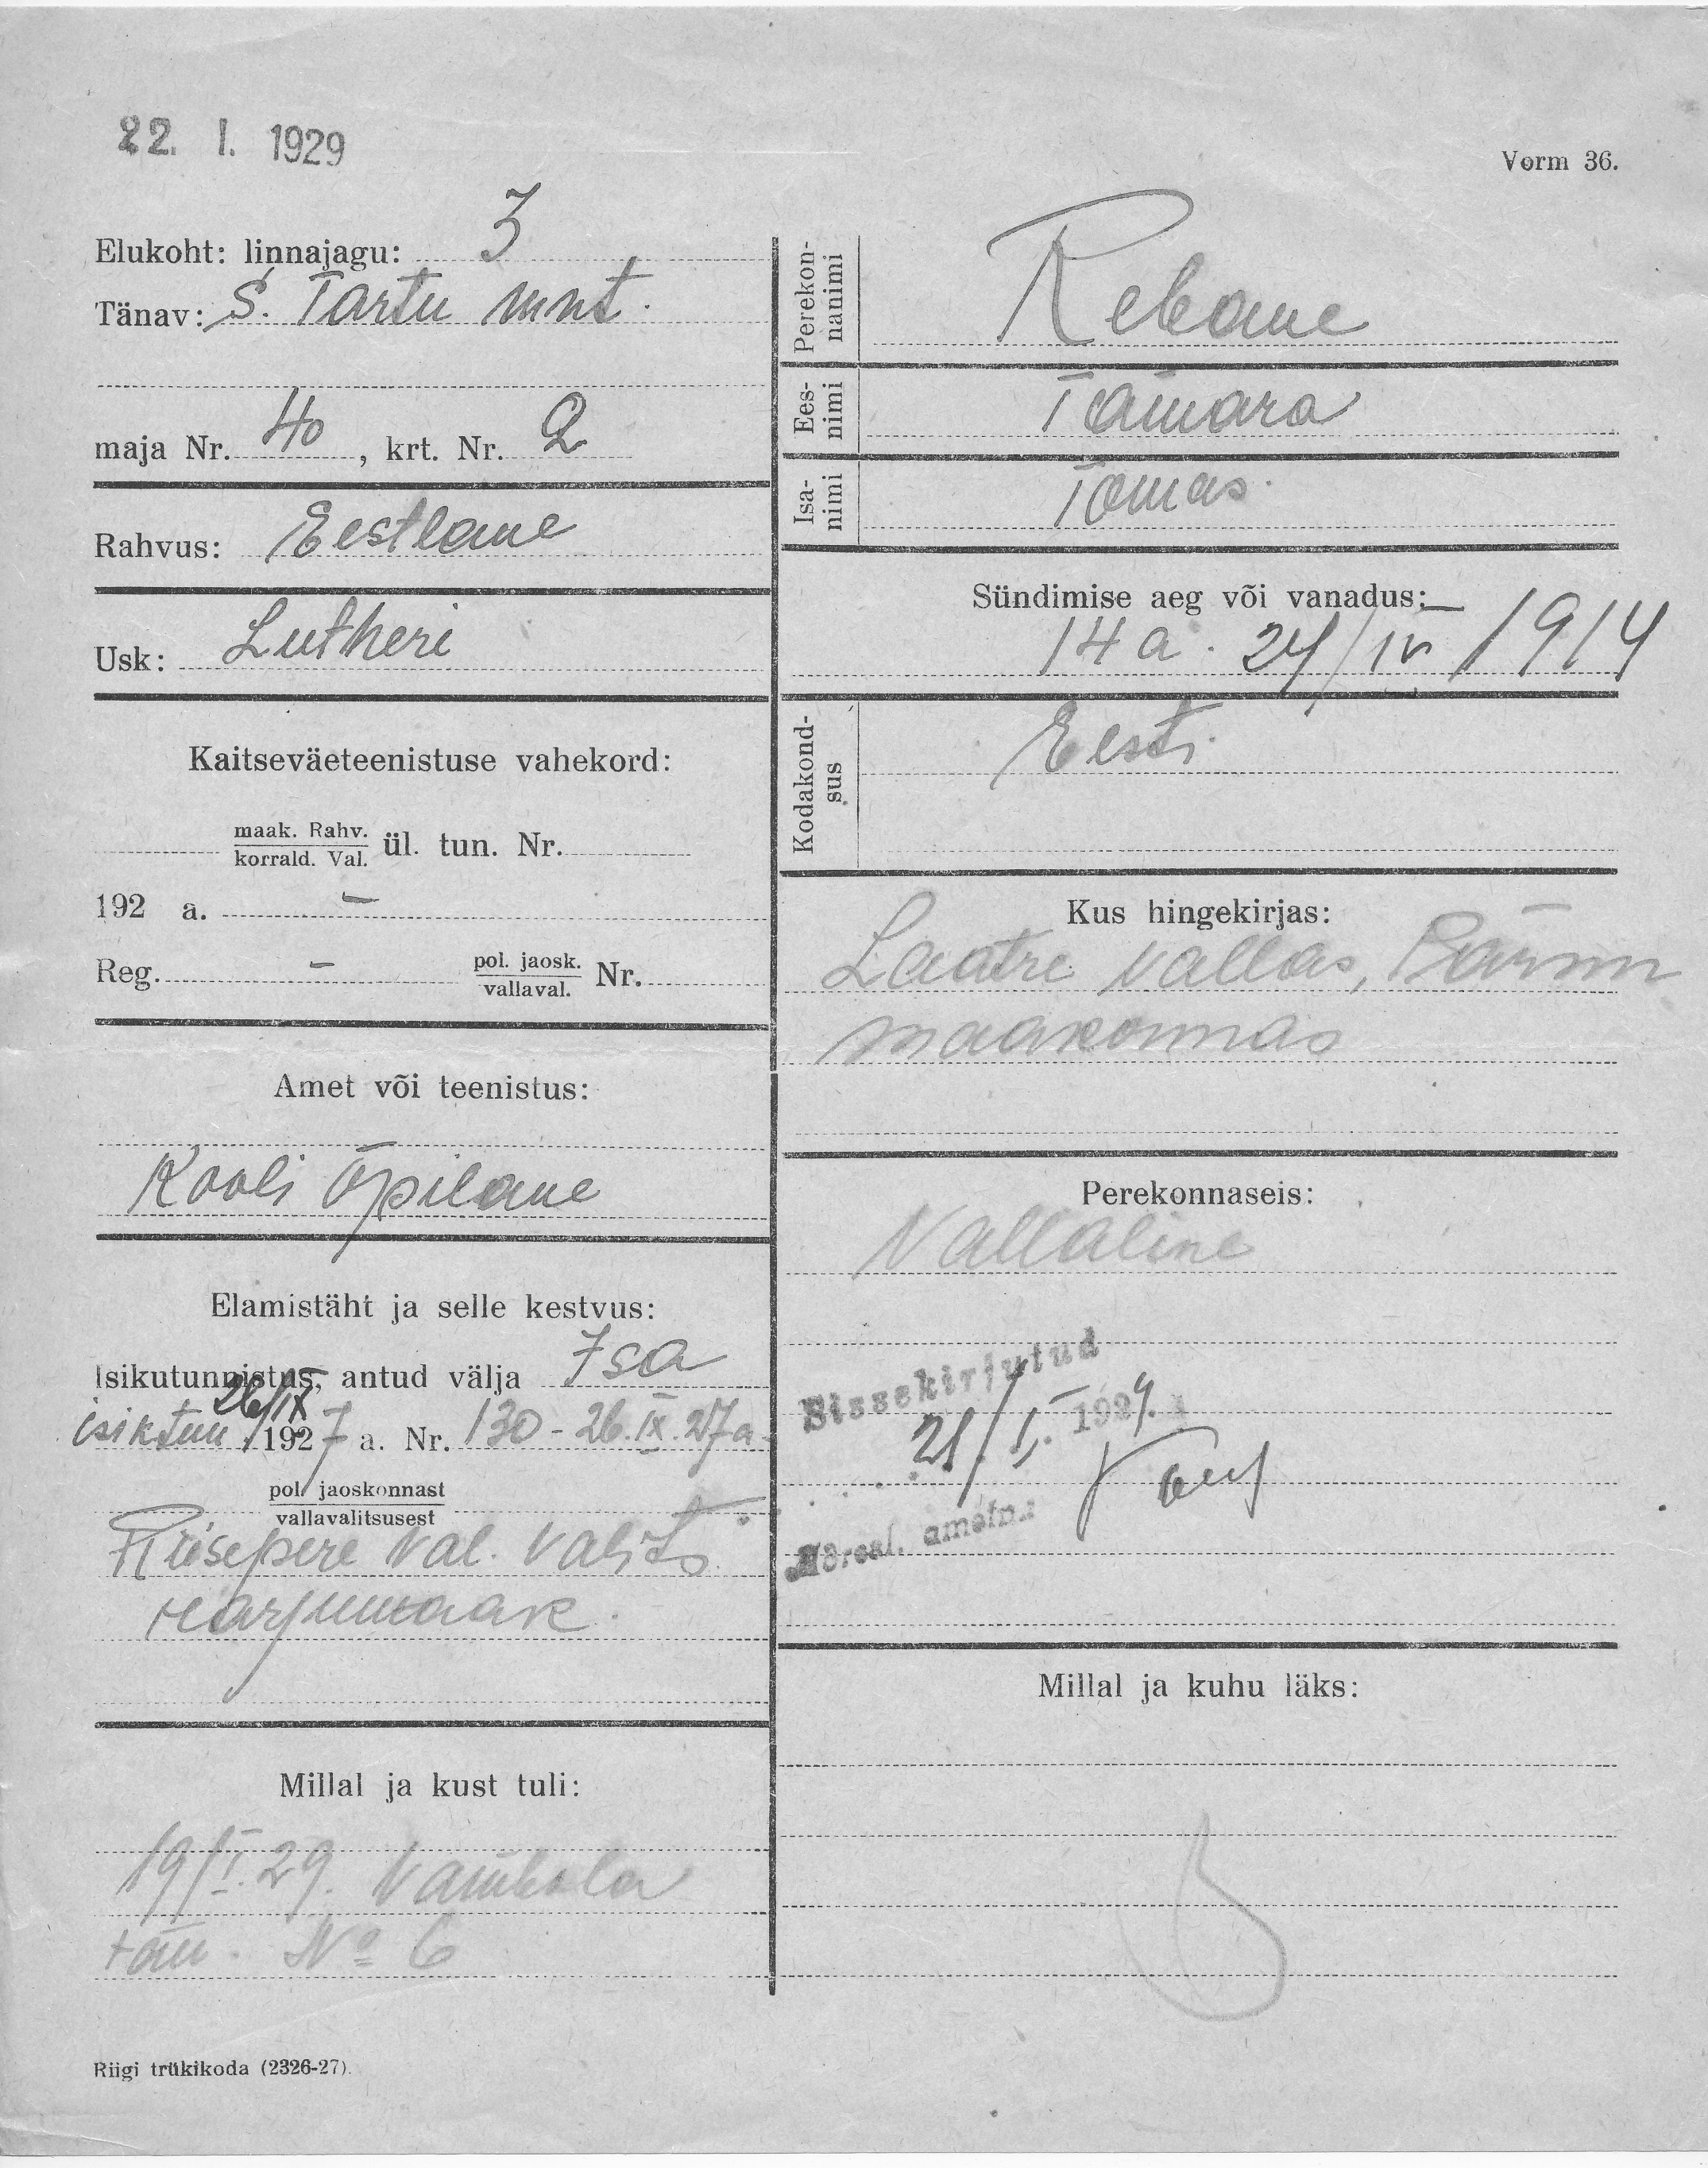 22. I. 1929
Vorm 36.
Elukoht: linnajagu: 3
Tänav: S. Tartu mnt.
maja Nr. 40, krt. Nr. 2
Rahvus: Eestlane
Usk: Lutheri
Kaitseväeteenistuse vahekord:
maak. Rahv.
korrald. Val. ül. tun. Nr.
192 a. –
Reg. – pol. jaosk.
vallaval. Nr.
Amet või teenistus:
Kooli õpilane
Elamistäht ja selle kestvus:
Isikutunnistus, antud välja Isa
isiktun. 26/IX 1927 a. Nr. 130 - 26.IX.27 a.
pol. jaoskonnast
vallavalitsusest
Riisepere val. valits.
Harjumaak.
Millal ja kust tuli:
19/I.29. Vambola
tän. No 6
Riigi trükikoda (2326-27).
Perekon-
nanimi
Rebane
Ees-
nimi
Tamara
Isa-
nimi
Tomas.
Sündimise aeg või vanadus:
14 a. 24/IV 1914
Kodakond-
sus
Eesti
Kus hingekirjas:
Laatre vallas, Pärnu
maakonnas
Perekonnaseis:
Vallaline
Sissekirjutud
21/I. 1929.
Millal ja kuhu läks: